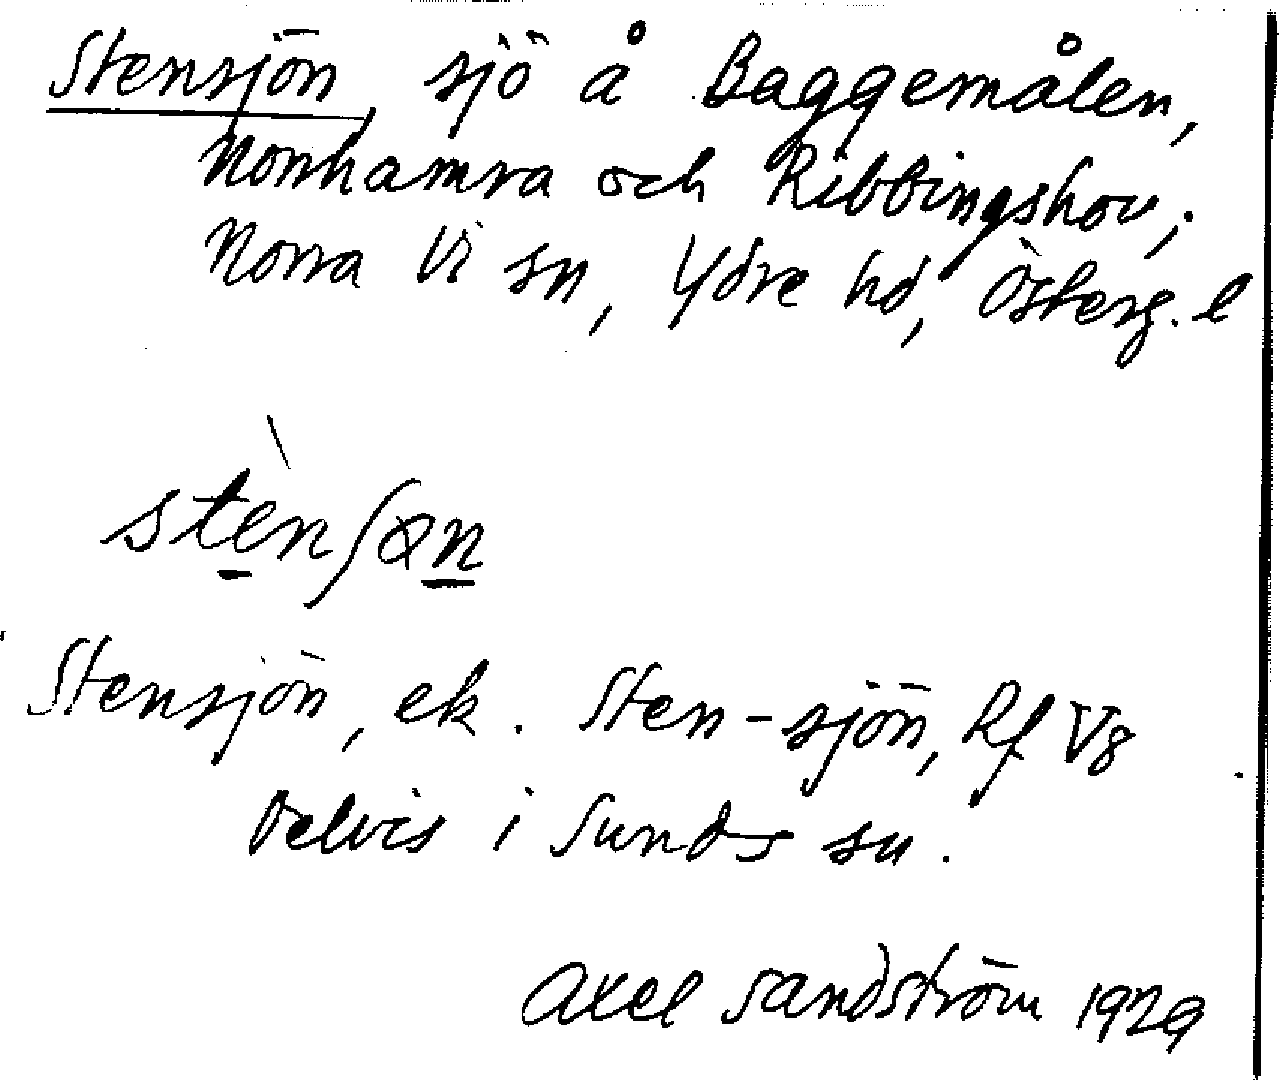 Stensjön, sjö å Baggemålen,
Norrhamra och Ribbingshov;
Norra Vi sn, Ydre hd, Österg. l
stènʃøn
Stensjön, ek. Sten-sjön, Rf V8
Delvis i Sunds sn.
Axel Sandström 1929